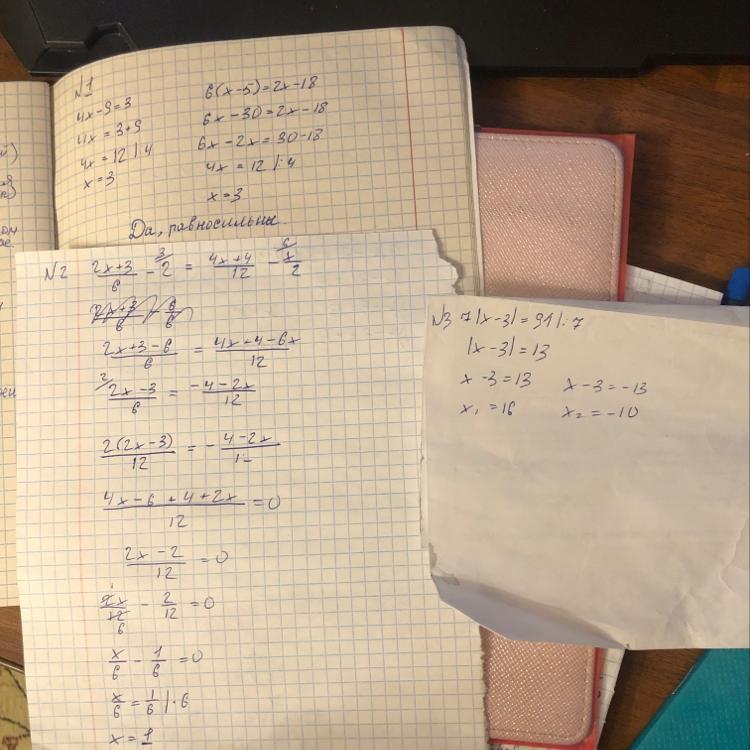 №1
4x-9=3
4x=3+9
4x=12 |:4
x=3
6(x-5)=2x-18
6x-30=2x-18
6x-2x=30-18
4x=12 |:4
x=3
Да, равносильны.
№2 (2x+3)/6 - 3/2 = (4x+4)/12 - 6/ x/2
(2x+3-6)/6 = (4x+4-6x)/12
2/ (2x-3)/6 = (-4-2x)/12
2(2x-3)/12 = - (4-2x)/12
(4x-6+4+2x)/12 = 0
(2x-2)/12 = 0
2x/12 - 2/12 = 0
1
6
x/6 - 1/6 = 0
x/6 = 1/6 |·6
x = 1
№3 7|x-3|=91 |:7
|x-3|=13
x-3=13 x-3=-13
x₁=16 x₂=-10